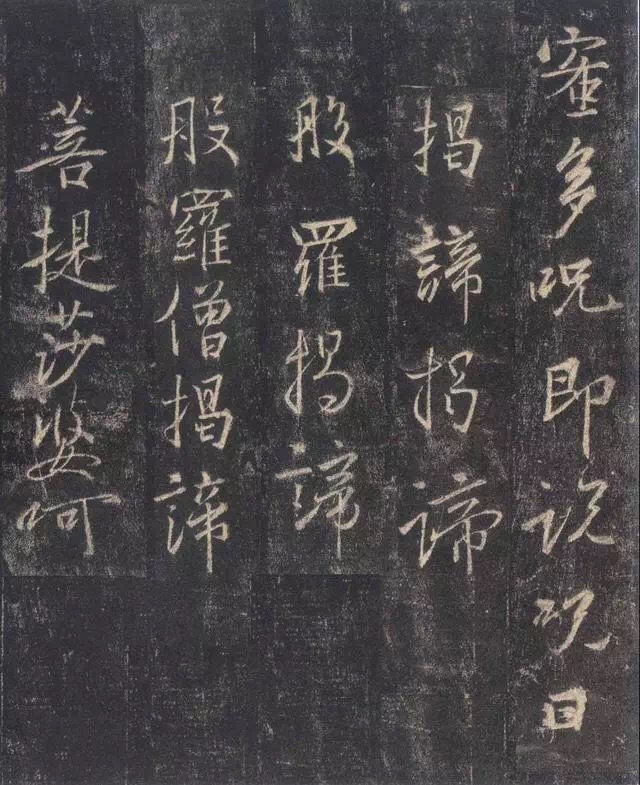 蜜多咒即説咒曰
揭諦揭諦
般羅揭諦
般羅僧揭諦
菩提莎婆呵